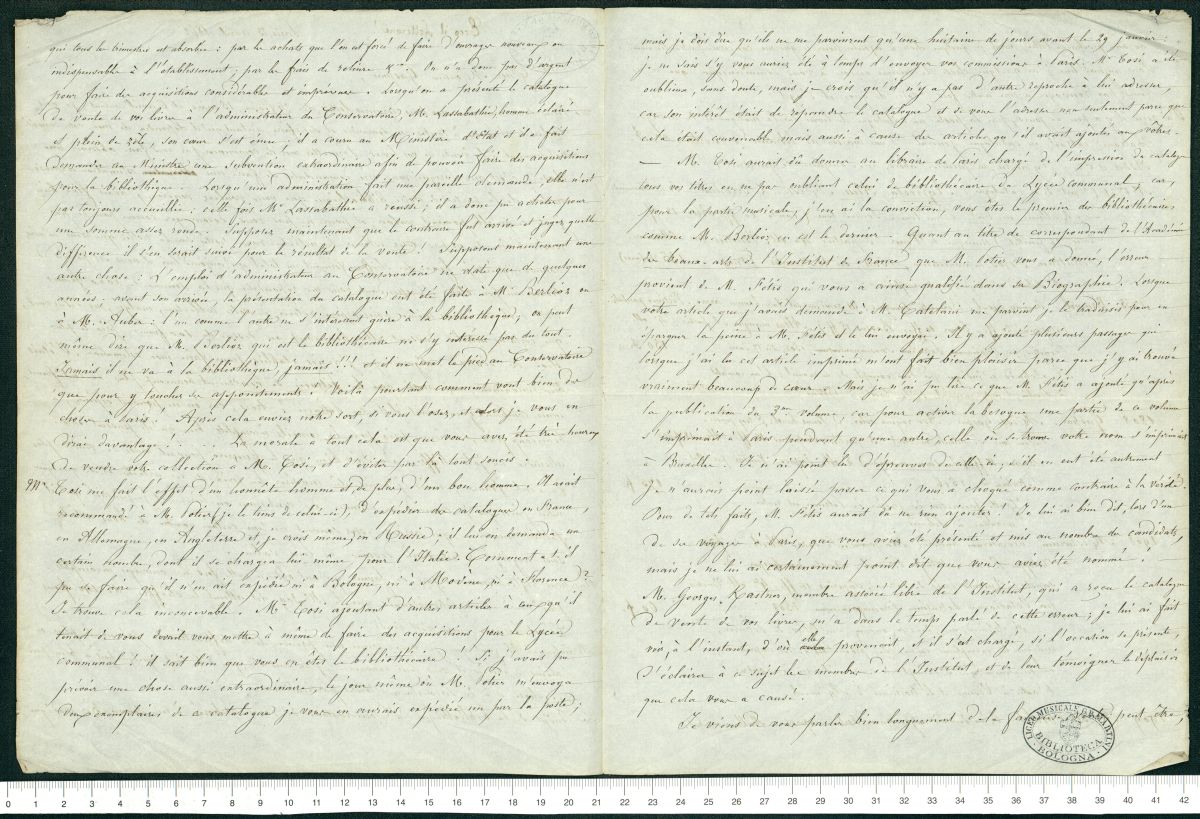 qui tous les trimestres est absorbé : par les achats que l'on est forcé de faire d'ouvrages nouveaux ou
indispensables à l'établissement ; par les frais de reliure &. On n'a donc pas d'argent
pour faire des acquisitions considérables et imprévues. Lorsqu'on a présenté le catalogue
de vente de vos livres à l'administrateur du Conservatoire, M. Lassabathie, homme éclairé
et plein de zèle, son cœur s'est ému ; il a couru au Ministère d'Etat et il a fait
demander au Ministre une subvention extraordinaire afin de pouvoir faire des acquisitions
pour la bibliothèque. Lorsqu'une administration fait une pareille demande, elle n'est
pas toujours accueillie ; cette fois Mr Lassabathie a réussi ; il a donc pu acheter pour
une somme assez ronde. Supposez maintenant que le contraire fut arrivé et jugez quelle
différence il s'en serait suivi pour le résultat de la vente. Supposons maintenant une
autre chose : L'emploi d'administrateur au Conservatoire ne date que de quelques
années ; avant son arrivée, la présentation du catalogue eut été faite à Mr Berlioz ou
à M. Auber : l'un comme l'autre ne s'intéressent guère à la bibliothèque ; on peut
même dire que M. Berlioz qui est le bibliothécaire ne s'y intéresse pas du tout.
Jamais il ne va à la bibliothèque, jamais !!! et il ne met le pied au Conservatoire
que pour y toucher ses appointements ! Voilà pourtant comment vont bien des
choses à Paris ! Après cela enviez notre sort, si vous l'osez, et alors je vous en
dirai davantage ! .... La morale à tout cela est que vous avez été très heureux
de vendre votre collection à M. Tosi, et d'éviter par là tout soucis.
Mr
Tosi me fait l'effet d'un honnête homme et, de plus, d'un bon homme. Il avait
recommandé à M. Potier (je le tiens de celui-ci), d'expédier des catalogues en France,
en Allemagne, en Angleterre et je crois même, en Russie ; il lui en demanda un
certain nombre, dont il se chargea lui-même pour l'Italie. Comment a-t-il
pu se faire qu'il n'en ait expédié ni à Bologne, ni à Modène, ni à Florence ?
Je trouve cela inconcevable. Mr Tosi ajoutant d'autres articles à ceux qu'il
tenait de vous devait vous mettre à même de faire des acquisitions pour le Lycée
communal ! il sait bien que vous en êtes le bibliothécaire ! Si j'avais pu
prévoir une chose aussi extraordinaire, le jour même où M. Potier m'envoya
deux exemplaires de ce catalogue je vous en aurais expédié un par la poste ;
mais je dois dire qu'ils ne me parvinrent qu'une huitaine de jours avant le 29 janvier :
je ne sais s'y vous auriez été à temps d'envoyer vos commissions à Paris. Mr Tosi a été
oublieux, sans doute, mais je crois qu'il n'y a pas d'autre reproche à lui adresser,
car son intérêt était de répandre le catalogue et de vous l'adresser non seulement parce que
cela était convenable mais aussi à cause des articles qu'il avait ajoutés aux vôtres.
— M. Tosi aurait dû donner au libraire de Paris chargé de l'impression du catalogue
tous vos titres en ne pas oubliant celui de bibliothécaire du Lycée communal, car,
pour la partie musicale, j'en ai la conviction, vous êtes le premier des bibliothécaires
comme M. Berlioz en est le dernier. Quant au titre de correspondant de l'Académie
des beaux-arts de l'Institut de France que M. Potier vous a donné, l'erreur
provient de M. Fétis qui vous a ainsi qualifié dans sa Biographie. Lorsque
votre article que j'avais demandé à M. Catelani me parvint je le traduisis pour en
épargner la peine à M. Fétis et le lui envoyai. Il y a ajouté plusieurs passages qui
lorsque j'ai lu cet article imprimé m'ont fait bien plaisir parce que j'y ai trouvé
vraiment beaucoup de cœur. Mais je n'ai pu lire ce que M. Fétis a ajouté qu'après
la publication du 3me volume, car pour activer la besogne une partie de ce volume
s'imprimait à Paris pendant qu'une autre, celle où se trouve votre nom s'imprimait
à Bruxelles. Je n'ai point lu d'épreuves de celle-ci, s'il en eut été autrement
je n'aurais point laissé passer ce qui vous a choqué comme contraire à la vérité.
Pour de tels faits, M. Fétis aurait dû ne rien ajouter ! Je lui ai bien dit, lors d'un
de ses voyages à Paris, que vous aviez été présenté et mis au nombre des candidats,
mais je ne lui ai certainement point dit que vous aviez été nommé.
M. Georges Kastner, membre associé libre de l'Institut, qui a reçu le catalogue
de vente de vos livres, m'a dans le temps parlé de cette erreur ; je lui ai fait
voir, à l'instant, d'où elle provenait, et il s'est chargé, si l'occasion se présente,
d'éclairer à ce sujet les membres de l'Institut, et de leur témoigner le déplaisir
que cela vous a causé.
Je viens de vous parler bien longuement de la peut être,
LICEO MUSICALE G.B. MARTINI
BIBLIOTECA
BOLOGNA
0 1 2 3 4 5 6 7 8 9 10 11 12 13 14 15 16 17 18 19 20 21 22 23 24 25 26 27 28 29 30 31 32 33 34 35 36 37 38 39 40 41 42